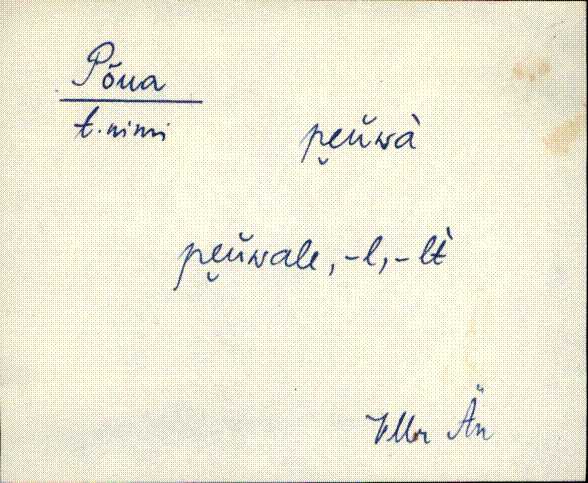 Põua
t. nimi
pe̮ŭwà
pe̮ŭwale, -l, -lt̀
Vllr Än